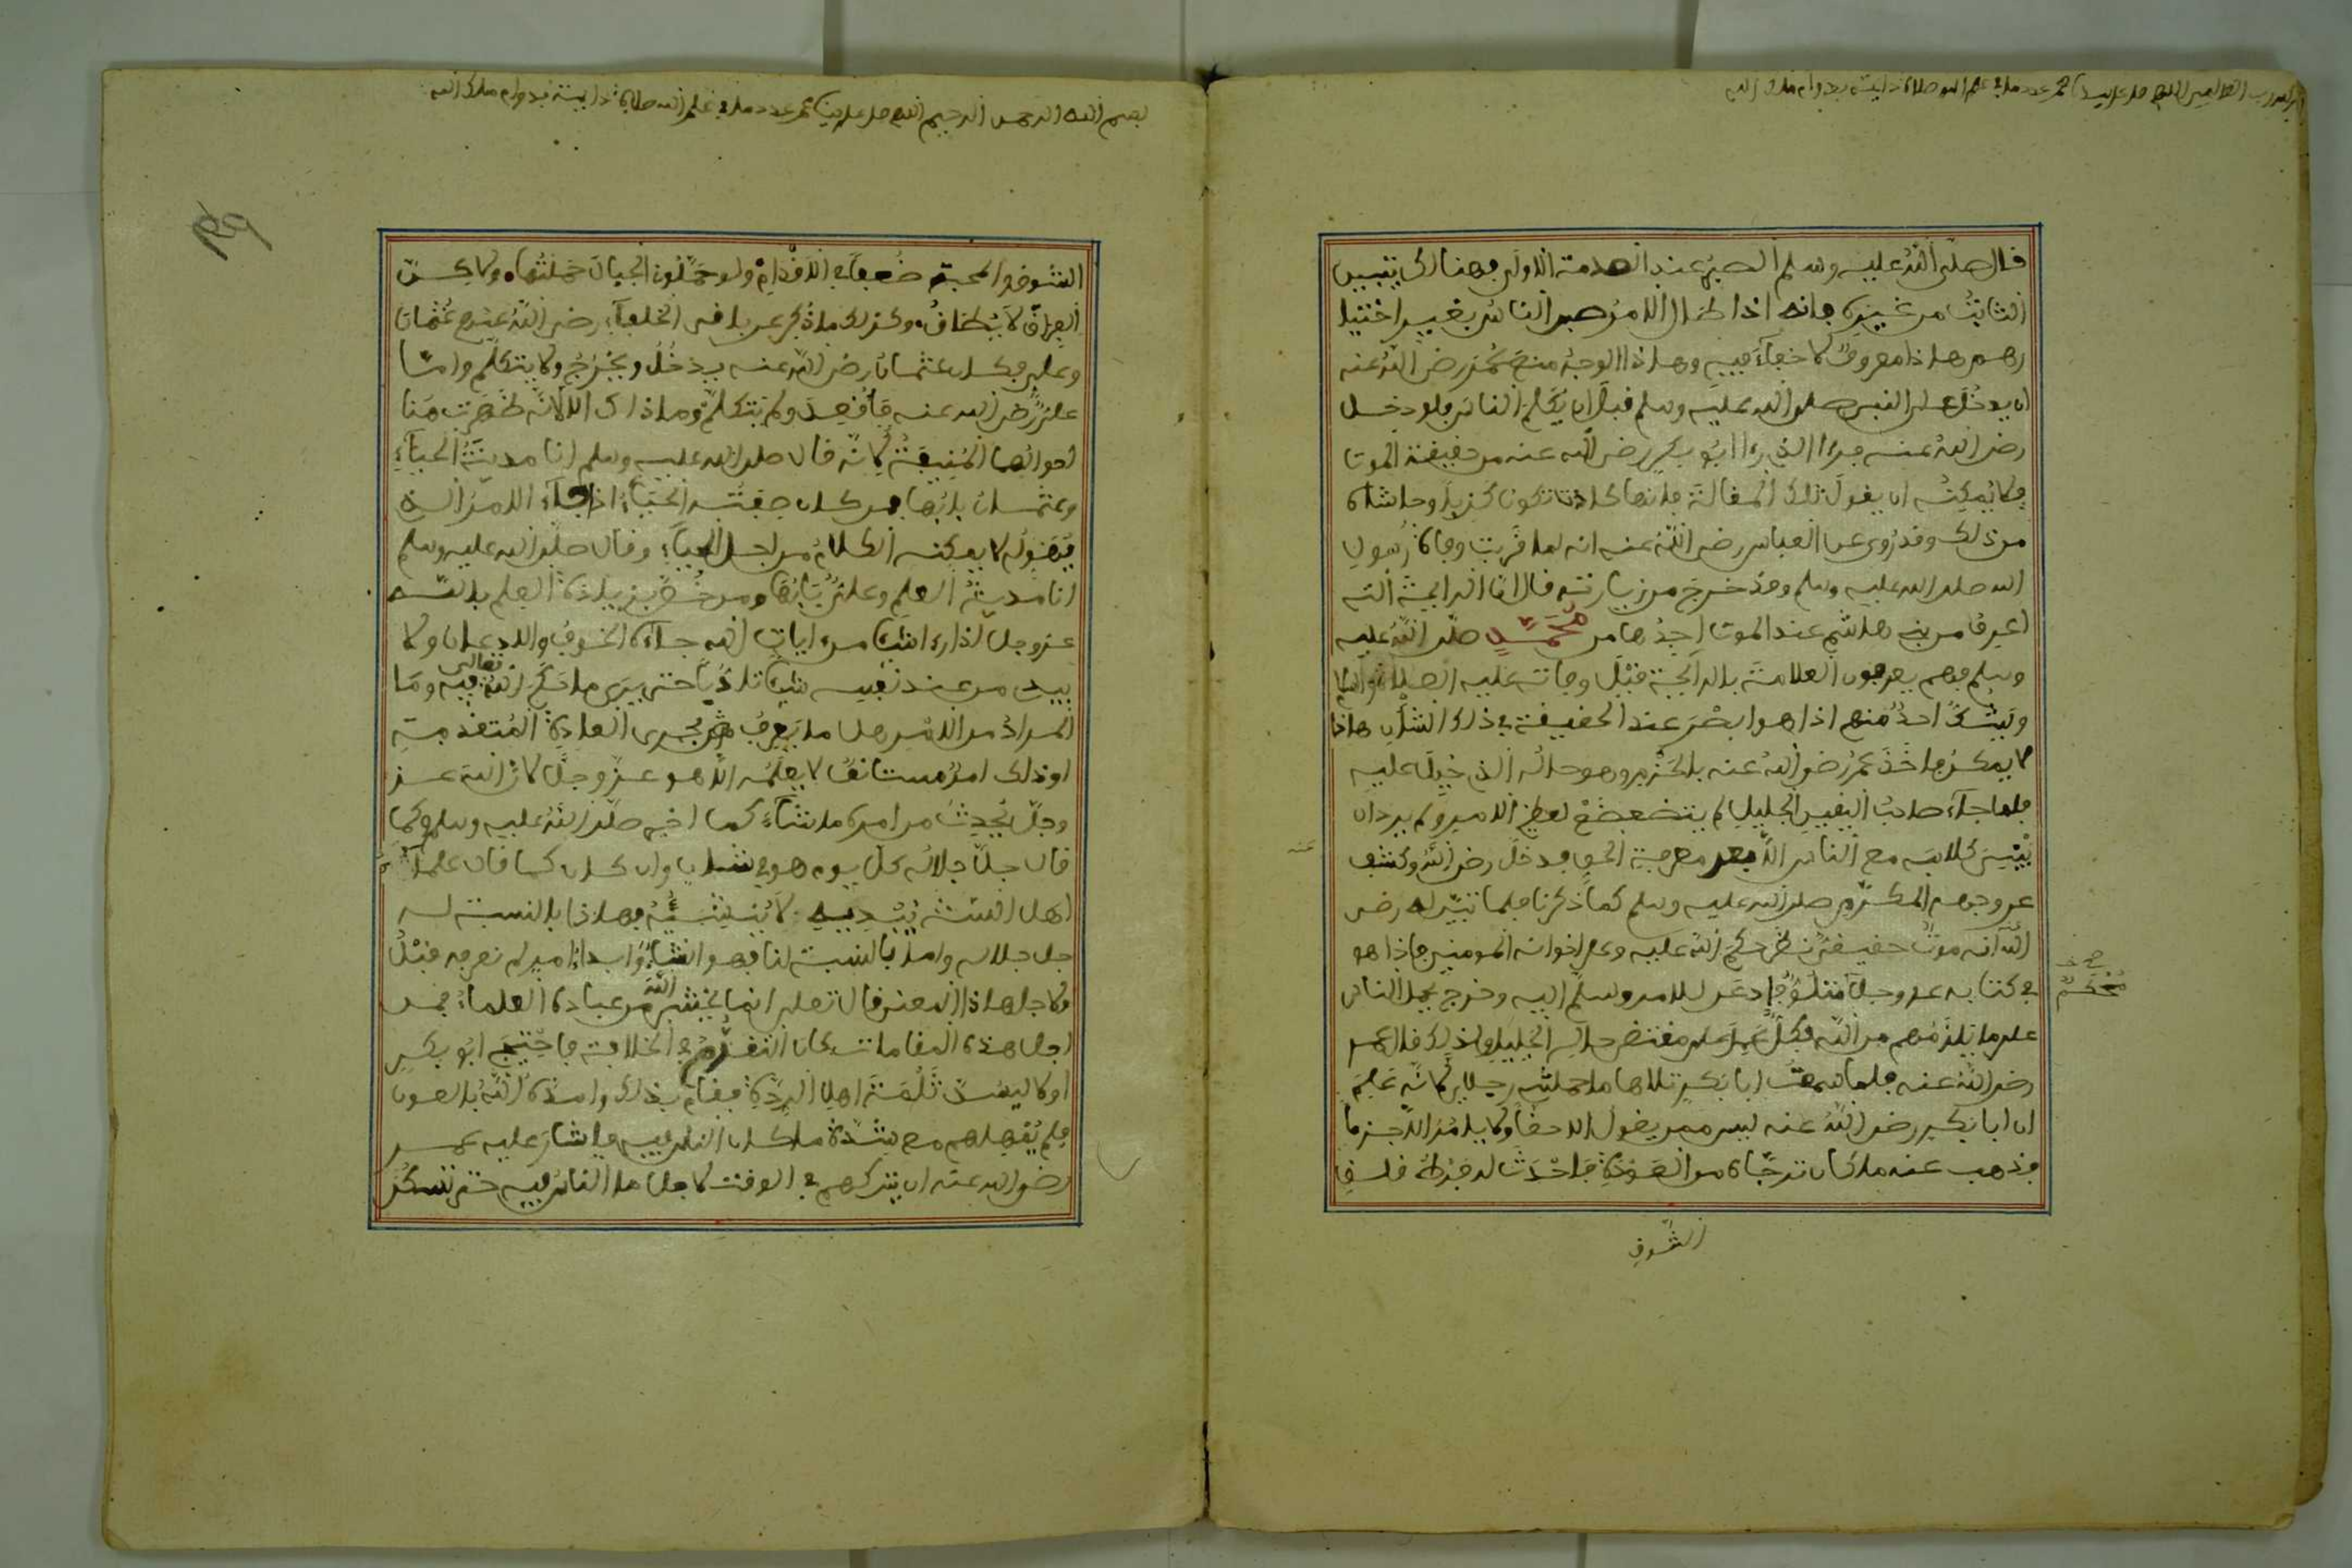 الحمد لله رب العالمين اللهم صل على سيدنا محمد عدد ما في علم الله صلاة دائمة بدوام ملك الله
قال صلى الله عليه وسلم الصبر عند الصدمة الاولى فهنالك يتبين
الثابت من غيره فانه اذا طال الامر صبر الناس بغير اختيا
رهم هذا معروف لا خفاء فيه وهذا الوجه منع عمر رضي الله عنه
ان يدخل على النبي صلى الله عليه وسلم قبل ان يكلم الناس فلو دخل
رضي الله عنه فرءا الذي رءا ابو بكر رضي الله عنه من حقيقة الموت
فلا يمكنه ان يقول تلك المقالة فانها كانت تكون كذبا وحاشاه
من ذلك وقد روي عن العباس رضي الله عنه انه لما قربت وفاة رسول
الله صلى الله عليه وسلم وقد خرج من زيارته قال انا الرايحة التي
اعرف من بني هاشم عند الموت اجدها من محمد صلى الله عليه
وسلم فهم يعرفون العلامة بالرايحة قبل وفاته عليه الصلاة والسلام
ويشك احد منهم اذا هو ابصر عند الحقيقة في ذلك الشان هاذا
لا يمكن فاخذ عمر رضي الله عنه بالحزم وهو حاله الذي جبل عليه
فلما جاء صاحب اليقين الجليل لم يتضعضع لعظيم الامر ولم يرد ان
يبين كلامه مع الناس الا بعد معرفة الحق فدخل رضي الله وكشف
عنه
عن وجهه المكرم صلى الله عليه وسلم كما ذكرنا فلما تبين له رضي
الله انه موت حقيقة نظر حكم الله عليه وعلى اخوانه المومنين فاذا هو
في كتابه عز وجل متلو فاذعن للامر وسلم اليه وخرج يحمل الناس
صح
محكم
على ما يلزمهم من الله فكل عمل على مقتضى حاله الجليل ولذلك قال عمر
رضي الله عنه فلما سمعت ابا بكر تلاها ما حملتني رجلاي لانه علم
ان ابا بكر رضي الله عنه ليس ممن يقول الا حقا ولا يامر الا جزما
فذهب عنه ما كان ترجاه من العودة فاحدث له فرط قلق
الشوق
بسم الله الرحمن الرحيم اللهم صل على سيدنا محمد عدد ما في علم الله صلاة دائمة بدوام ملك الله
الشوق والمحبة ضعفا في الاقدام ولو حملوه الجبال حملتها ولاكن
الفراق لا يطاق وكذلك ما ذكر عن باقي الخلفاء رضي الله عنهم عثمان
وعلي فكان عثمان رضي الله عنه يدخل ويخرج ولا يتكلم واما
علي رضي الله عنه فاقعد ولم يتكلم وما ذاك الا لانه ظهرت هنا
احوالهما المنيفة لانه قال صلى الله عليه وسلم انا مدينة الحياء
وعثمان بابها فمن كان صفته الحياء اذا جاء الامر الذي
يهوله لا يمكنه الكلام من اجل الحياء وقال صلى الله عليه وسلم
انا مدينة العلم وعلي بابها ومن خص بزيادة العلم بالله
عز وجل اذا رءا شيئا من ءايات الله جاءه الخوف والاذعان ولا
يبدي من عند نفسه شيئا تادبا حتى يرى ما حكم الله تعالى فيه وما
المراد من الامر هل ما يعرف من مجرى العادة المتقدمة
او ذلك امر مستانف لا يعلمه الا هو عز وجل لان الله عز
وجل يحدث من امره ما شاء كما اخبر صلى الله عليه وسلم وكما
قال جل جلاله كل يوم هو في شان وان كان كما قال علماء
اهل السنة يبديه لا ينشيه فهاذا بالنسبة له
جل جلاله واما بالنسبة لنا فهو انشاء وابداء امر لم نعرفه قبل
ولاجل هاذا المعنى قال تعلى انما يخشى الله من عباده العلماء فمن
اجل هذه المقامات كان التقدم في الخلافة فاحتيج ابو بكر
اولا ليسد ثلمة اهل الردة فقام بذلك وامده الله بالعون
فلم يمهلهم مع شدة ما كان الناس فيه واشار عليه عمر
رضي الله عنه ان يتركهم في الوقت لاجل ما الناس فيه حتى تسكن